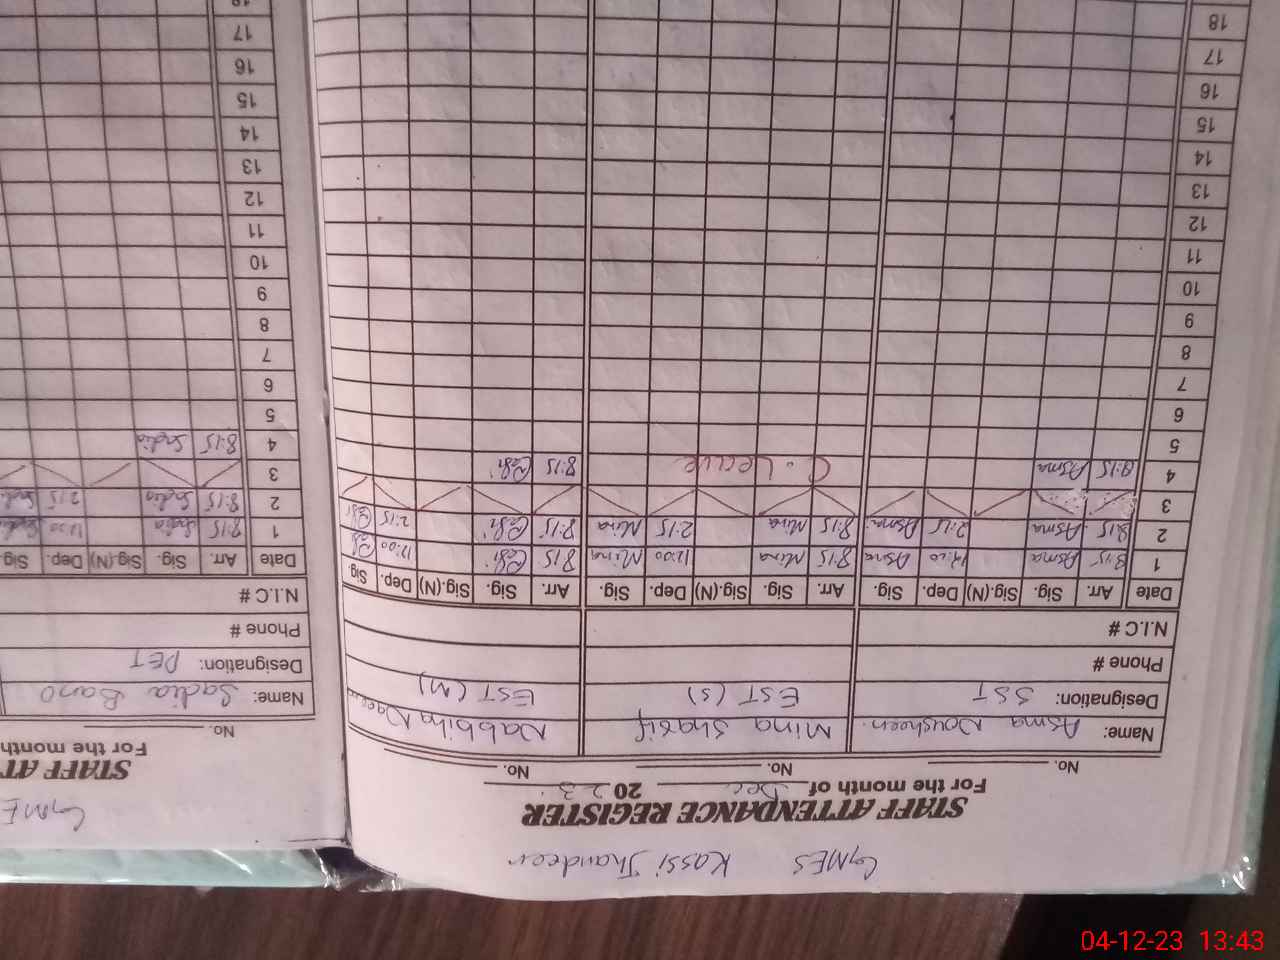 GMES Kassi Jhandeer
STAFF ATTENDANCE REGISTER
For the month of Dec 2023
No. No. No.
Name: Asma Nousheen. Mina Sharif Nabbiha
Designation: SST EST (S) EST (N)
Phone #
N.I.C #
Date Arr. Sig. Sig.(N) Dep. Sig. Arr. Sig. Sig.(N) Dep. Sig. Arr. Sig. Sig.(N) Dep. Sig.
1 8:15 Asma 12:00 Asma 8:15 Mina 12:00 Mina 8:15 12:00
2 8:15 Asma 2:15 Asma 8:15 Mina 2:15 Mina 8:15 2:15
3
4 8:15 Asma C. Leave 8:15
5
6
7
8
9
10
11
12
13
14
15
16
17
18
GME
STAFF AT
For the month
No.
Name: Sadia Bano
Designation: PET
Phone #
N.I.C #
Date Arr. Sig. Sig.(N) Dep. Sig.
1 8:15 Sadia 12:00
2 8:15 Sadia 2:15
3
4 8:15 Sadia
5
6
7
8
9
10
11
12
13
14
15
16
17
18
04-12-23 13:43